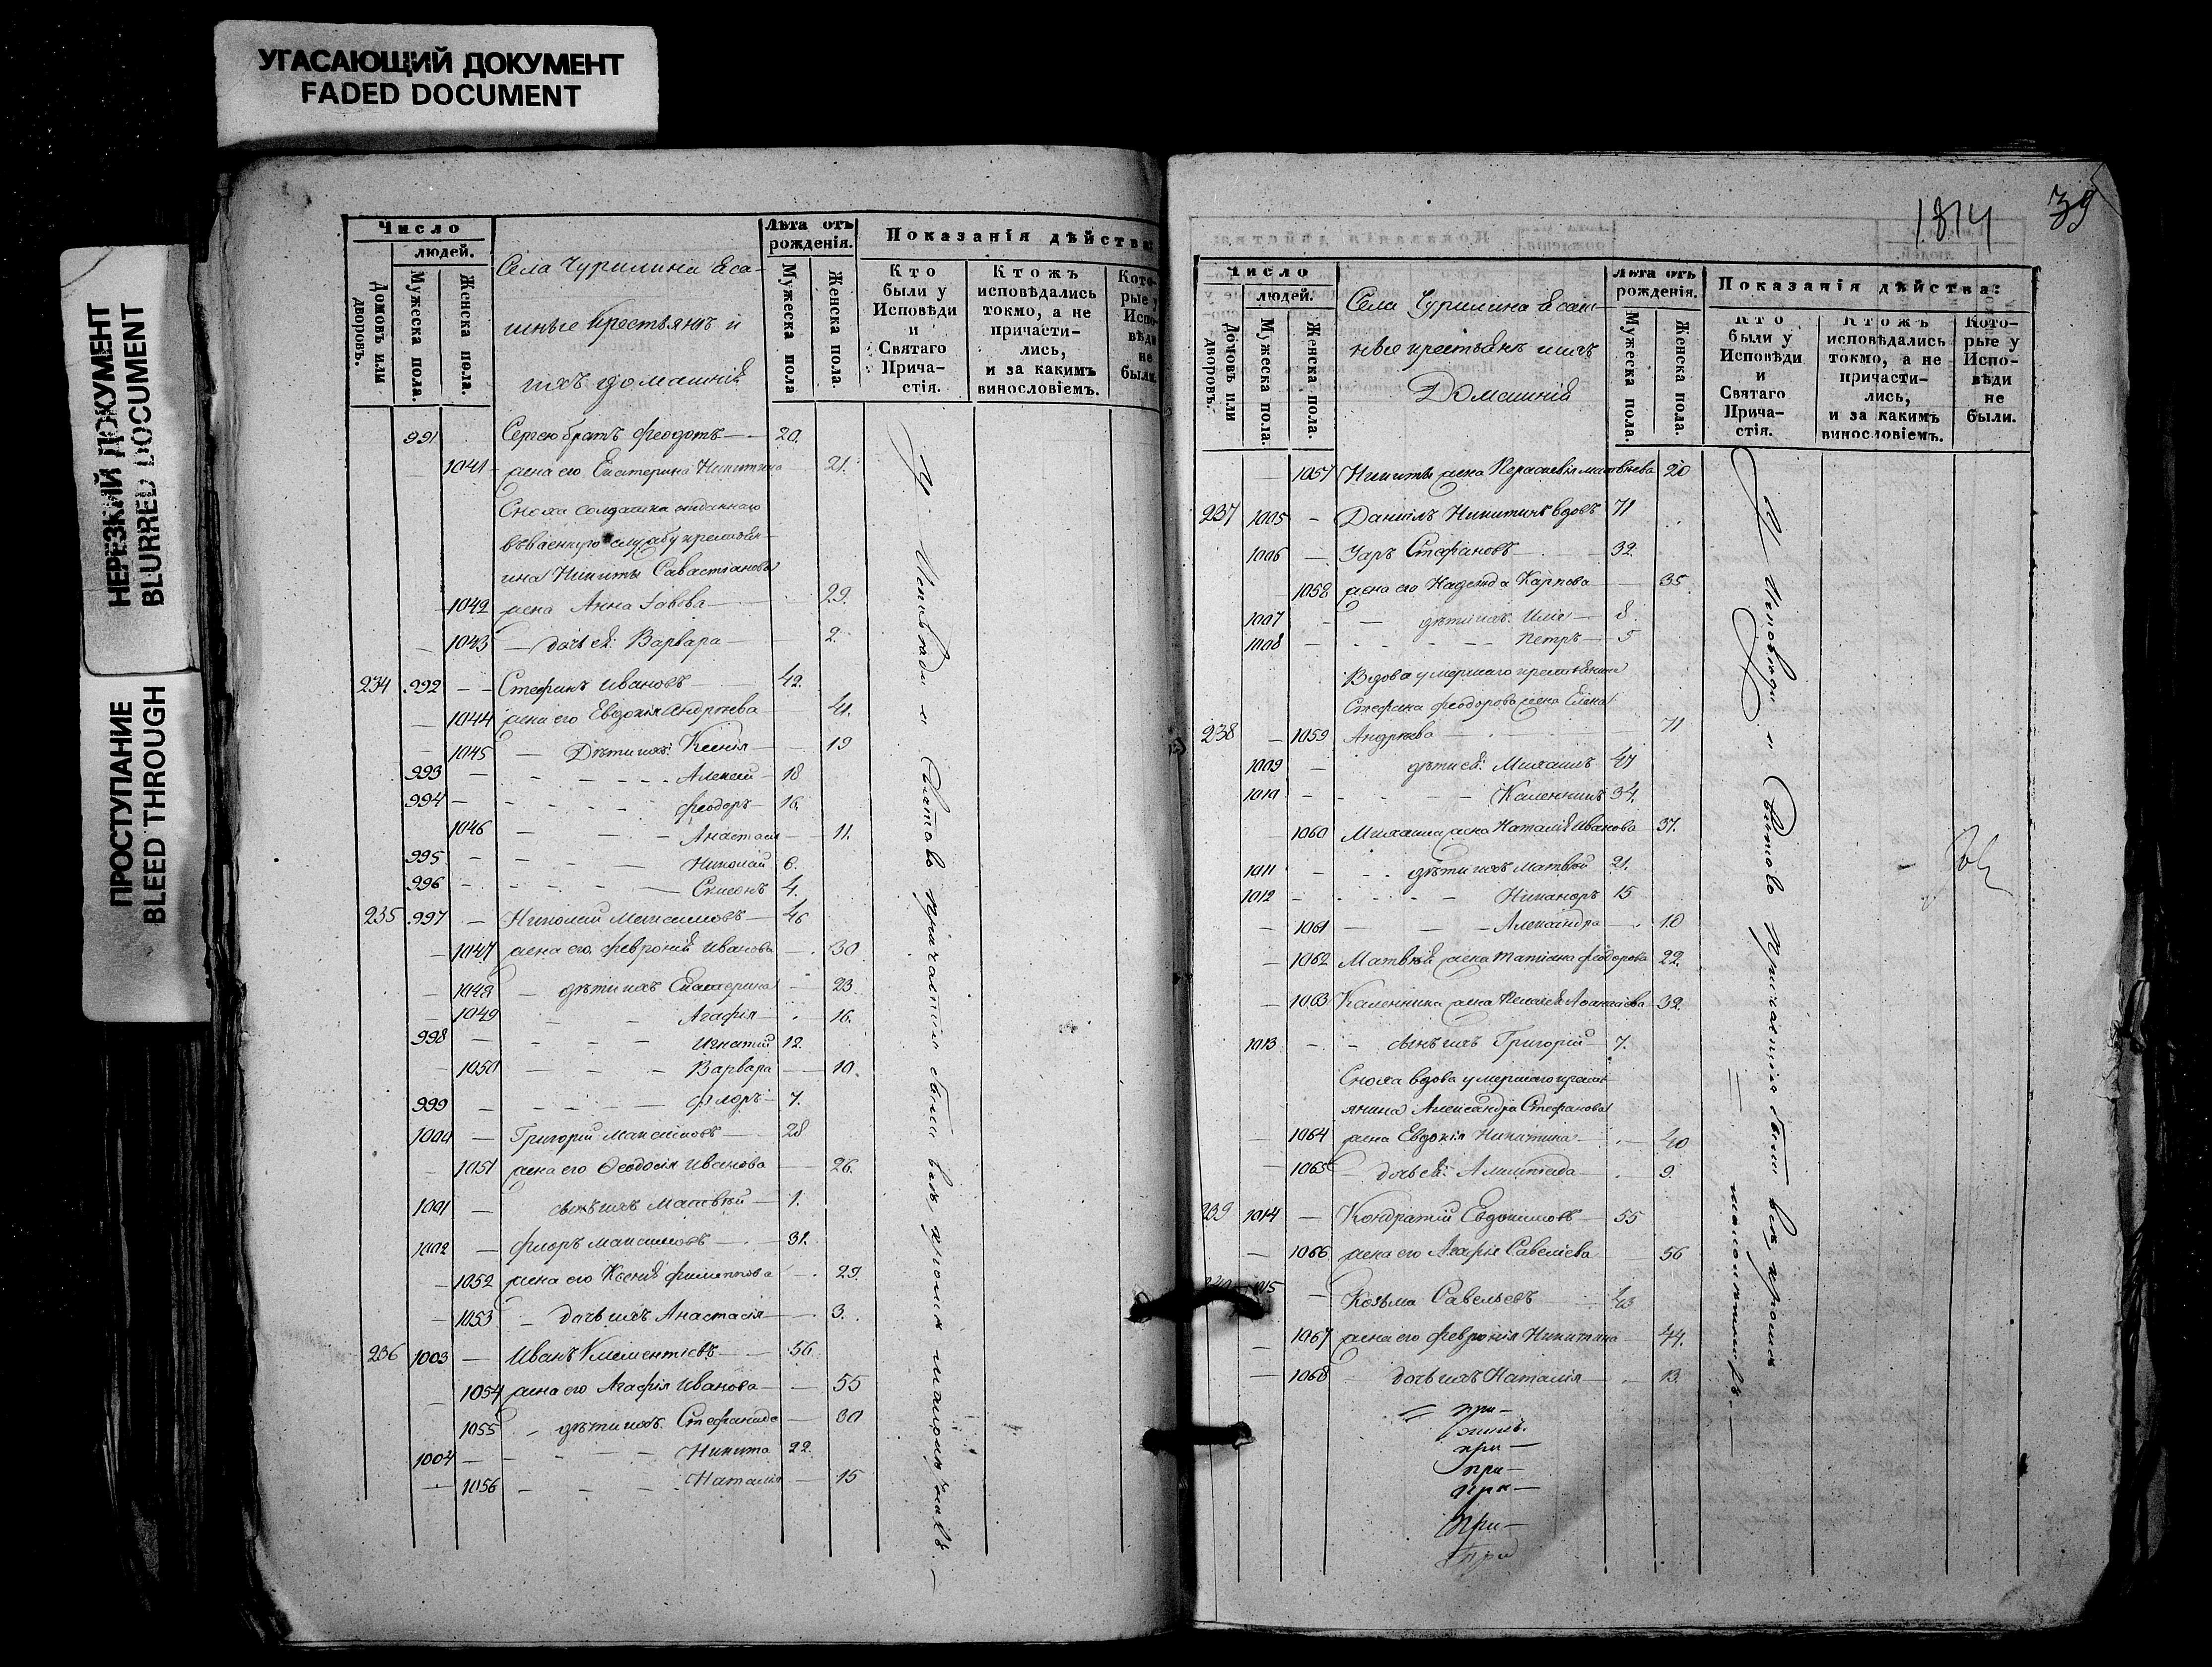 УГАСАЮЩИЙ ДОКУМЕНТ
FADED DOCUMENT
НЕРЕЗКИЙ ДОКУМЕНТ
BLURRED DOCUMENT
ПРОСТУПАНИЕ
BLEED THROUGH
Число
людей.
Домовъ или дворовъ.
Мужеска пола.
Женска пола.
Села Чурилина
крестьянъ и
ихъ домашнiя
Лѣта отъ рожденія.
Мужеска пола
Женска пола.
Показанія дѣйства:
Кто были у Исповѣди и Святаго Прича-стія.
Ктожъ исповѣдались токмо, а не причасти-лись, и за какимъ винословіемъ.
Кото-рые у Испо-вѣди не были.
991 Сергею братъ Феодотъ 20.
1041 жена его Екатерина Никитина 21.
Сноха солдатка отданнаго
въ военную службу крестьян-
ина Никиты Савастіанова
1042 жена Анна 29.
1043 дочь ея: Варвара 2.
234 992 Стефанъ Ивановъ 42.
1044 жена его Евдокія Андреева 41.
1045 Дѣти ихъ: Ксенія 19
993 Алексей 18.
994 Феодоръ 16.
1046 Анастасія 11.
995 Николай 6.
996 Симеонъ 4.
235 997 Николай Максимовъ
1047 жена его Февронія Иванова 30.
1048 дѣти ихъ Екатерина 23
1049 Агафія 16.
998 Игнатий 12.
1050 Варвара 10.
999 Флоръ 7.
1000 Григорій Максимовъ 28
1051 жена его Феодосія Иванова 26.
1001 сынъ ихъ Матвѣй 1.
1002 Флоръ Максимовъ 31.
1052 жена его Ксенія Филиппова 29.
1053 дочь ихъ Анастасія 3.
236 1003 Иванъ Климентіевъ 56
1054 жена его Агафія Иванова 55
1055 дѣти ихъ: Стефанида 30
1004 Никита 22.
1056 Наталія 15
У Исповѣди и Святаго причастія были всѣ, кромѣ малолѣтнихъ.
1814
39
Число
людей.
Домовъ или дворовъ.
Мужеска пола.
Женска пола.
Села Чурилина
крестьянъ и ихъ
Домашнія
Лѣта отъ рожденія.
Мужеска пола.
Женска пола.
Показанія дѣйства:
Кто были у Исповѣди и Святаго Прича-стія.
Ктожъ исповѣдались токмо, а не причасти-лись, и за какимъ винословіемъ.
Кото-рые у Испо-вѣди не были.
1057 Никиты жена Параскевія Матвѣева 20
237 1005 Даніилъ Никитинъ вдовъ 71
1006 Стефановъ 32.
1058 жена его Надежда Карпова 35.
1007 дѣти ихъ: Илія 8.
1008 Петръ 5
Вдова умершаго крестьянина
Стефана Феодорова жена Елена
238 1059 Андреева 71
1009 дѣти ея: Михаилъ 47
1010 Калинникъ 34.
1060 Михаила жена Наталія Иванова 37.
1011 дѣти ихъ Матвѣй 21.
1012 Никаноръ 15
1061 Александра 10
1062 Матвѣя жена Татіана Феодорова 22.
1063 Калинника жена Пелагея 32.
1013 сынъ ихъ Григорій 7.
Сноха вдова умершаго кресть-
янина Александра Стефанова
1064 жена Евдокія Никитина 40
1065 дочь ея: 9.
239 1014 Кондратій Евдокимовъ 55
1066 жена его Агафія Савеліева 56
1015 Козьма Савельевъ
1067 жена его Февронія Никитина 44.
1068 дочь ихъ Наталія 13.
при-
при-
при-
при-
При-
У Исповѣди и Святаго Причастія были всѣ, кромѣ
малолѣтнихъ.